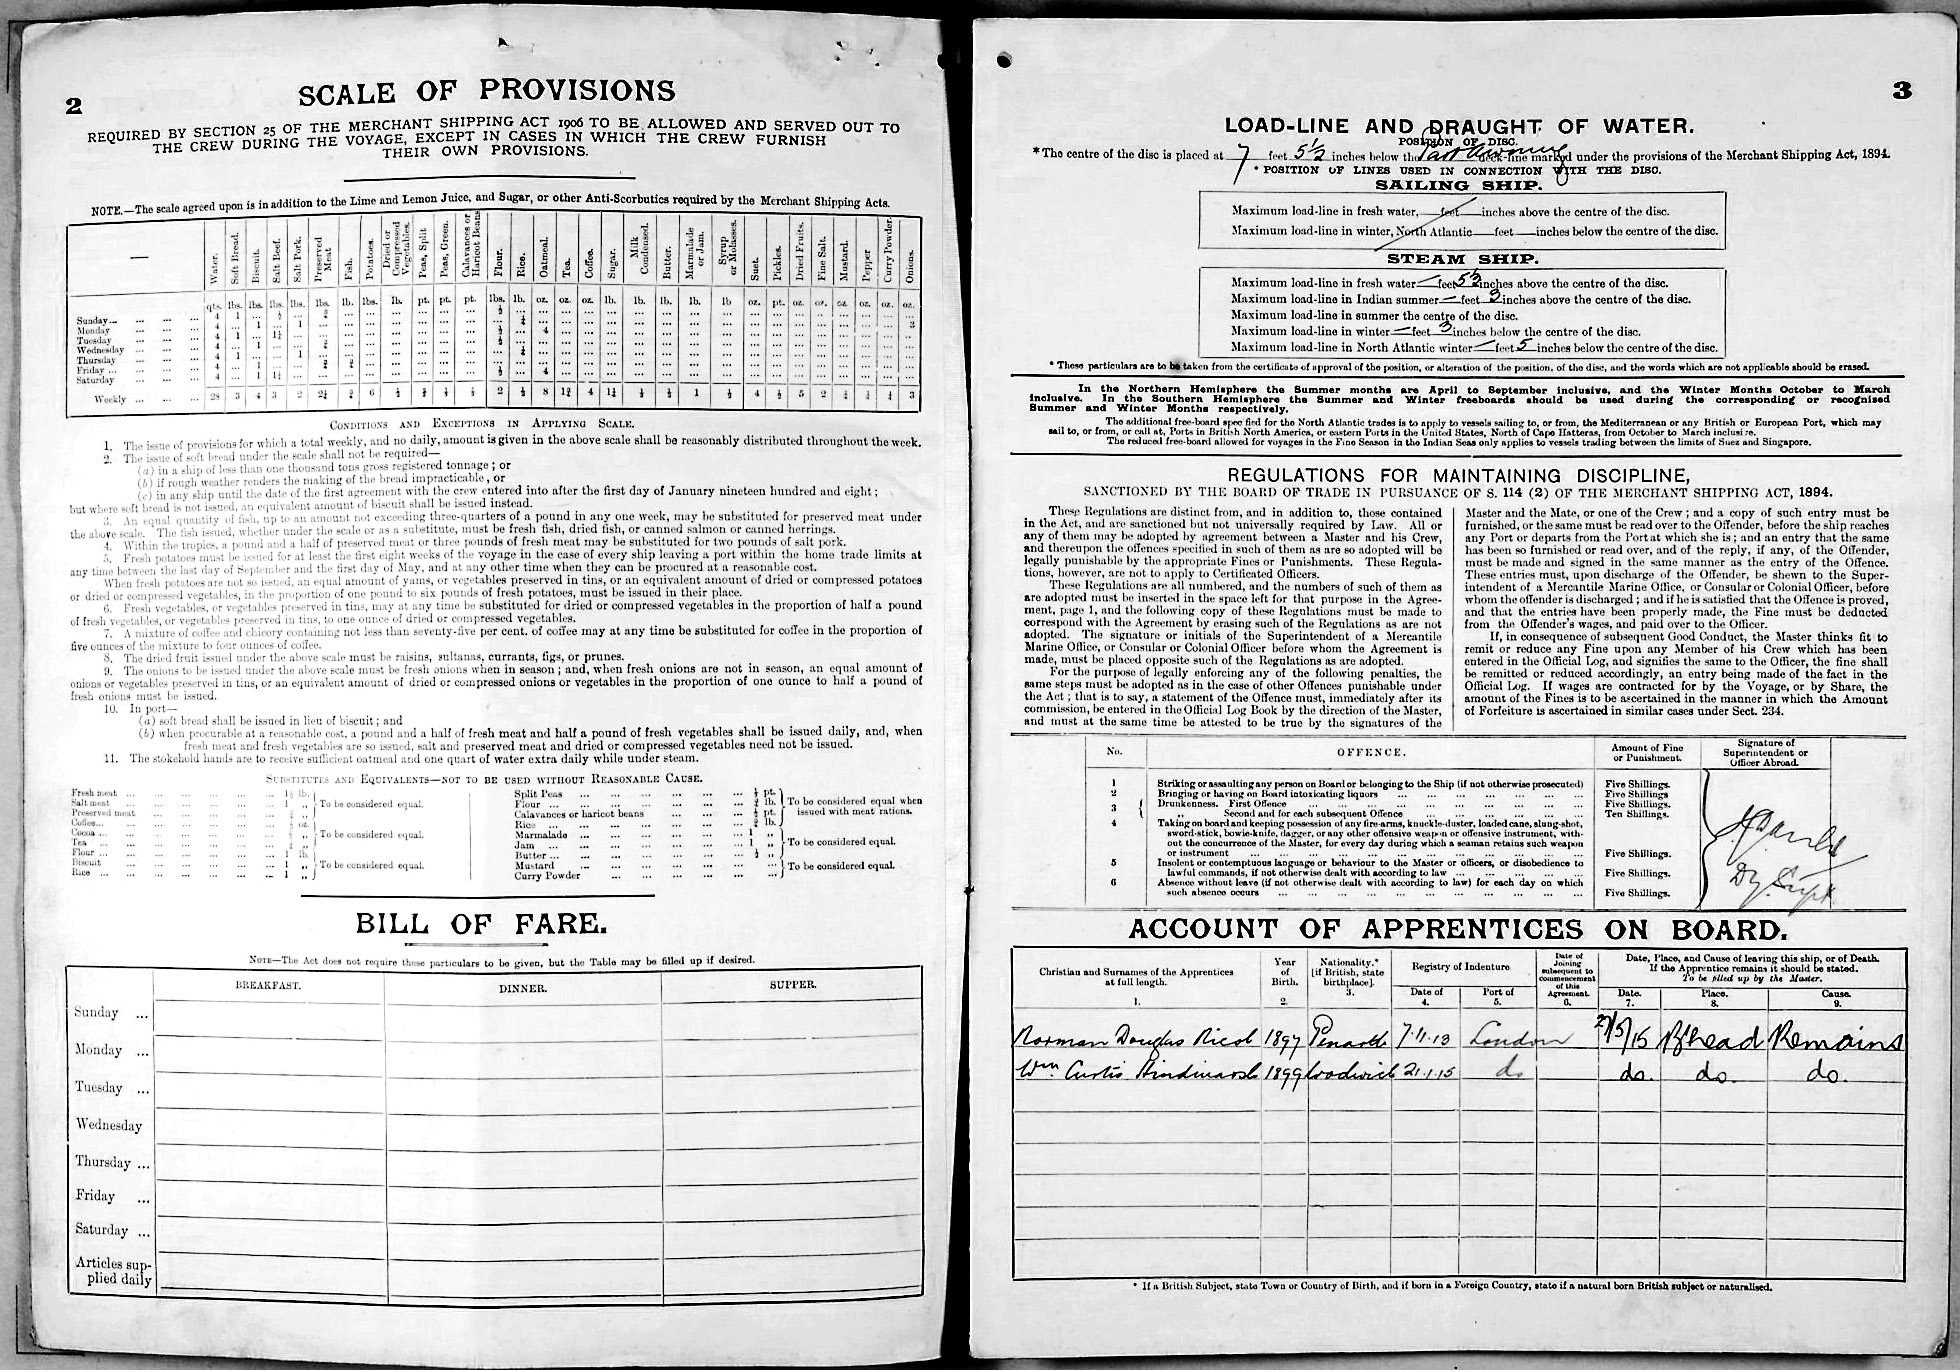 2
SCALE OF PROVISIONS
REQUIRED BY SECTION 25 OF THE MERCHANT SHIPPING ACT 1906 TO BE ALLOWED AND SERVED OUT TO
THE CREW DURING THE VOYAGE, EXCEPT IN CASES IN WHICH THE CREW FURNISH
THEIR OWN PROVISIONS.
NOTE.—The scale agreed upon is in addition to the Lime and Lemon Juice, and Sugar, or other Anti-Scorbutics required by the Merchant Shipping Acts.
— Water. Soft Bread. Biscuit. Salt Beef. Salt Pork. Preserved Meat Fish. Potatoes. Dried or Compressed Vegetables. Peas, Split Peas, Green. Calavances or Haricot Beans Flour. Rice. Oatmeal. Tea. Coffee. Sugar. Milk Condensed. Butter. Marmalade or Jam. Syrup or Molasses. Suet. Pickles. Dried Fruits. Fine Salt. Mustard. Pepper Curry Powder. Onions.
qts. lbs. lbs. lbs. lbs. lbs. lb. lbs. lb. pt. pt. pt. lbs. lb. oz. oz. oz. lb. lb. lb. lb. lb oz. pt. oz. oz. oz oz. oz. oz.
Sunday...
Monday
Tuesday
Wednesday
Thursday
Friday ...
Saturday
Weekly
CONDITIONS AND EXCEPTIONS IN APPLYING SCALE.
1. The issue of provisions for which a total weekly, and no daily, amount is given in the above scale shall be reasonably distributed throughout the week.
2. The issue of soft bread under the scale shall not be required—
(a) in a ship of less than one thousand tons gross registered tonnage; or
(b) if rough weather renders the making of the bread impracticable, or
(c) in any ship until the date of the first agreement with the crew entered into after the first day of January nineteen hundred and eight;
but where soft bread is not issued, an equivalent amount of biscuit shall be issued instead.
3. An equal quantity of fish, up to an amount not exceeding three-quarters of a pound in any one week, may be substituted for preserved meat under
the above scale. The fish issued, whether under the scale or as a substitute, must be fresh fish, dried fish, or canned salmon or canned herrings.
4. Within the tropics, a pound and a half of preserved meat or three pounds of fresh meat may be substituted for two pounds of salt pork.
5. Fresh potatoes must be issued for at least the first eight weeks of the voyage in the case of every ship leaving a port within the home trade limits at
any time between the last day of September and the first day of May, and at any other time when they can be procured at a reasonable cost.
When fresh potatoes are not so issued, an equal amount of yams, or vegetables preserved in tins, or an equivalent amount of dried or compressed potatoes
or dried or compressed vegetables, in the proportion of one pound to six pounds of fresh potatoes, must be issued in their place.
6. Fresh vegetables, or vegetables preserved in tins, may at any time be substituted for dried or compressed vegetables in the proportion of half a pound
of fresh vegetables, or vegetables preserved in tins, to one ounce of dried or compressed vegetables.
7. A mixture of coffee and chicory containing not less than seventy-five per cent. of coffee may at any time be substituted for coffee in the proportion of
five ounces of the mixture to four ounces of coffee.
8. The dried fruit issued under the above scale must be raisins, sultanas, currants, figs, or prunes.
9. The onions to be issued under the above scale must be fresh onions when in season; and, when fresh onions are not in season, an equal amount of
onions or vegetables preserved in tins, or an equivalent amount of dried or compressed onions or vegetables in the proportion of one ounce to half a pound of
fresh onions must be issued.
10. In port—
(a) soft bread shall be issued in lieu of biscuit; and
(b) when procurable at a reasonable cost, a pound and a half of fresh meat and half a pound of fresh vegetables shall be issued daily, and, when
fresh meat and fresh vegetables are so issued, salt and preserved meat and dried or compressed vegetables need not be issued.
11. The stokehold hands are to receive sufficient oatmeal and one quart of water extra daily while under steam.
SUBSTITUTES AND EQUIVALENTS—NOT TO BE USED WITHOUT REASONABLE CAUSE.
Fresh meat ... 1½ lb.
Salt meat ... 1 „ To be considered equal.
Preserved meat
Coffee...
Cocoa ... To be considered equal.
Tea
Flour ... 1 lb.
Biscuit 1 „ To be considered equal.
Rice ... 1 „
Split Peas
Flour ... To be considered equal when
Calavances or haricot beans issued with meat rations.
Rice
Marmalade 1 „
Jam 1 „ To be considered equal.
Butter ... ½ „
Mustard To be considered equal.
Curry Powder
BILL OF FARE.
NOTE—The Act does not require these particulars to be given, but the Table may be filled up if desired.
BREAKFAST. DINNER. SUPPER.
Sunday ...
Monday ...
Tuesday ...
Wednesday
Thursday ...
Friday ...
Saturday ...
Articles sup-
plied daily
3
LOAD-LINE AND DRAUGHT OF WATER.
POSITION OF DISC.
*The centre of the disc is placed at 7 feet 5½ inches below the deck-line marked under the provisions of the Merchant Shipping Act, 1894.
* POSITION OF LINES USED IN CONNECTION WITH THE DISC.
SAILING SHIP.
Maximum load-line in fresh water, — feet — inches above the centre of the disc.
Maximum load-line in winter, North Atlantic — feet — inches below the centre of the disc.
STEAM SHIP.
Maximum load-line in fresh water — feet 5½ inches above the centre of the disc.
Maximum load-line in Indian summer — feet 3 inches above the centre of the disc.
Maximum load-line in summer the centre of the disc.
Maximum load-line in winter — feet 3 inches below the centre of the disc.
Maximum load-line in North Atlantic winter — feet 5 inches below the centre of the disc.
* These particulars are to be taken from the certificate of approval of the position, or alteration of the position, of the disc, and the words which are not applicable should be erased.
In the Northern Hemisphere the Summer months are April to September inclusive, and the Winter Months October to March
inclusive. In the Southern Hemisphere the Summer and Winter freeboards should be used during the corresponding or recognised
Summer and Winter Months respectively.
The additional free-board specified for the North Atlantic trades is to apply to vessels sailing to, or from, the Mediterranean or any British or European Port, which may
sail to, or from, or call at, Ports in British North America, or eastern Ports in the United States, North of Cape Hatteras, from October to March inclusive.
The reduced free-board allowed for voyages in the Fine Season in the Indian Seas only applies to vessels trading between the limits of Suez and Singapore.
REGULATIONS FOR MAINTAINING DISCIPLINE,
SANCTIONED BY THE BOARD OF TRADE IN PURSUANCE OF S. 114 (2) OF THE MERCHANT SHIPPING ACT, 1894.
These Regulations are distinct from, and in addition to, those contained
in the Act, and are sanctioned but not universally required by Law. All or
any of them may be adopted by agreement between a Master and his Crew,
and thereupon the offences specified in such of them as are so adopted will be
legally punishable by the appropriate Fines or Punishments. These Regula-
tions, however, are not to apply to Certificated Officers.
These Regulations are all numbered, and the numbers of such of them as
are adopted must be inserted in the space left for that purpose in the Agree-
ment, page 1, and the following copy of these Regulations must be made to
correspond with the Agreement by erasing such of the Regulations as are not
adopted. The signature or initials of the Superintendent of a Mercantile
Marine Office, or Consular or Colonial Officer before whom the Agreement is
made, must be placed opposite such of the Regulations as are adopted.
For the purpose of legally enforcing any of the following penalties, the
same steps must be adopted as in the case of other Offences punishable under
the Act; that is to say, a statement of the Offence must, immediately after its
commission, be entered in the Official Log Book by the direction of the Master,
and must at the same time be attested to be true by the signatures of the
Master and the Mate, or one of the Crew; and a copy of such entry must be
furnished, or the same must be read over to the Offender, before the ship reaches
any Port or departs from the Port at which she is; and an entry that the same
has been so furnished or read over, and of the reply, if any, of the Offender,
must be made and signed in the same manner as the entry of the Offence.
These entries must, upon discharge of the Offender, be shewn to the Super-
intendent of a Mercantile Marine Office, or Consular or Colonial Officer, before
whom the offender is discharged; and if he is satisfied that the Offence is proved,
and that the entries have been properly made, the Fine must be deducted
from the Offender's wages, and paid over to the Officer.
If, in consequence of subsequent Good Conduct, the Master thinks fit to
remit or reduce any Fine upon any Member of his Crew which has been
entered in the Official Log, and signifies the same to the Officer, the fine shall
be remitted or reduced accordingly, an entry being made of the fact in the
Official Log. If wages are contracted for by the Voyage, or by Share, the
amount of the Fines is to be ascertained in the manner in which the Amount
of Forfeiture is ascertained in similar cases under Sect. 234.
No. OFFENCE. Amount of Fine or Punishment. Signature of Superintendent or Officer Abroad.
1 Striking or assaulting any person on Board or belonging to the Ship (if not otherwise prosecuted) Five Shillings.
2 Bringing or having on Board intoxicating liquors ... Five Shillings.
3 Drunkenness. First Offence ... Five Shillings.
„ Second and for each subsequent Offence ... Ten Shillings.
4 Taking on board and keeping possession of any fire-arms, knuckle-duster, loaded cane, slung-shot,
sword-stick, bowie-knife, dagger, or any other offensive weapon or offensive instrument, with-
out the concurrence of the Master, for every day during which a seaman retains such weapon
or instrument ... Five Shillings.
5 Insolent or contemptuous language or behaviour to the Master or officers, or disobedience to
lawful commands, if not otherwise dealt with according to law ... Five Shillings.
6 Absence without leave (if not otherwise dealt with according to law) for each day on which
such absence occurs ... Five Shillings.
Dy. Supt.
ACCOUNT OF APPRENTICES ON BOARD.
Christian and Surnames of the Apprentices at full length. 1. Year of Birth. 2. Nationality.* [if British, state birthplace]. 3. Registry of Indenture Date of 4. Port of 5. Date of Joining subsequent to commencement of this Agreement. 6. Date, Place, and Cause of leaving this ship, or of Death. If the Apprentice remains it should be stated. To be filled up by the Master. Date. 7. Place. 8. Cause. 9.
Norman Douglas 1897 Penarth 7.11.13 London 27/5/15 B'head Remains
Wm. Curtis Hindmarsh 1899 Woolwich 21.1.15 do do. do. do.
* If a British Subject, state Town or Country of Birth, and if born in a Foreign Country, state if a natural born British subject or naturalised.